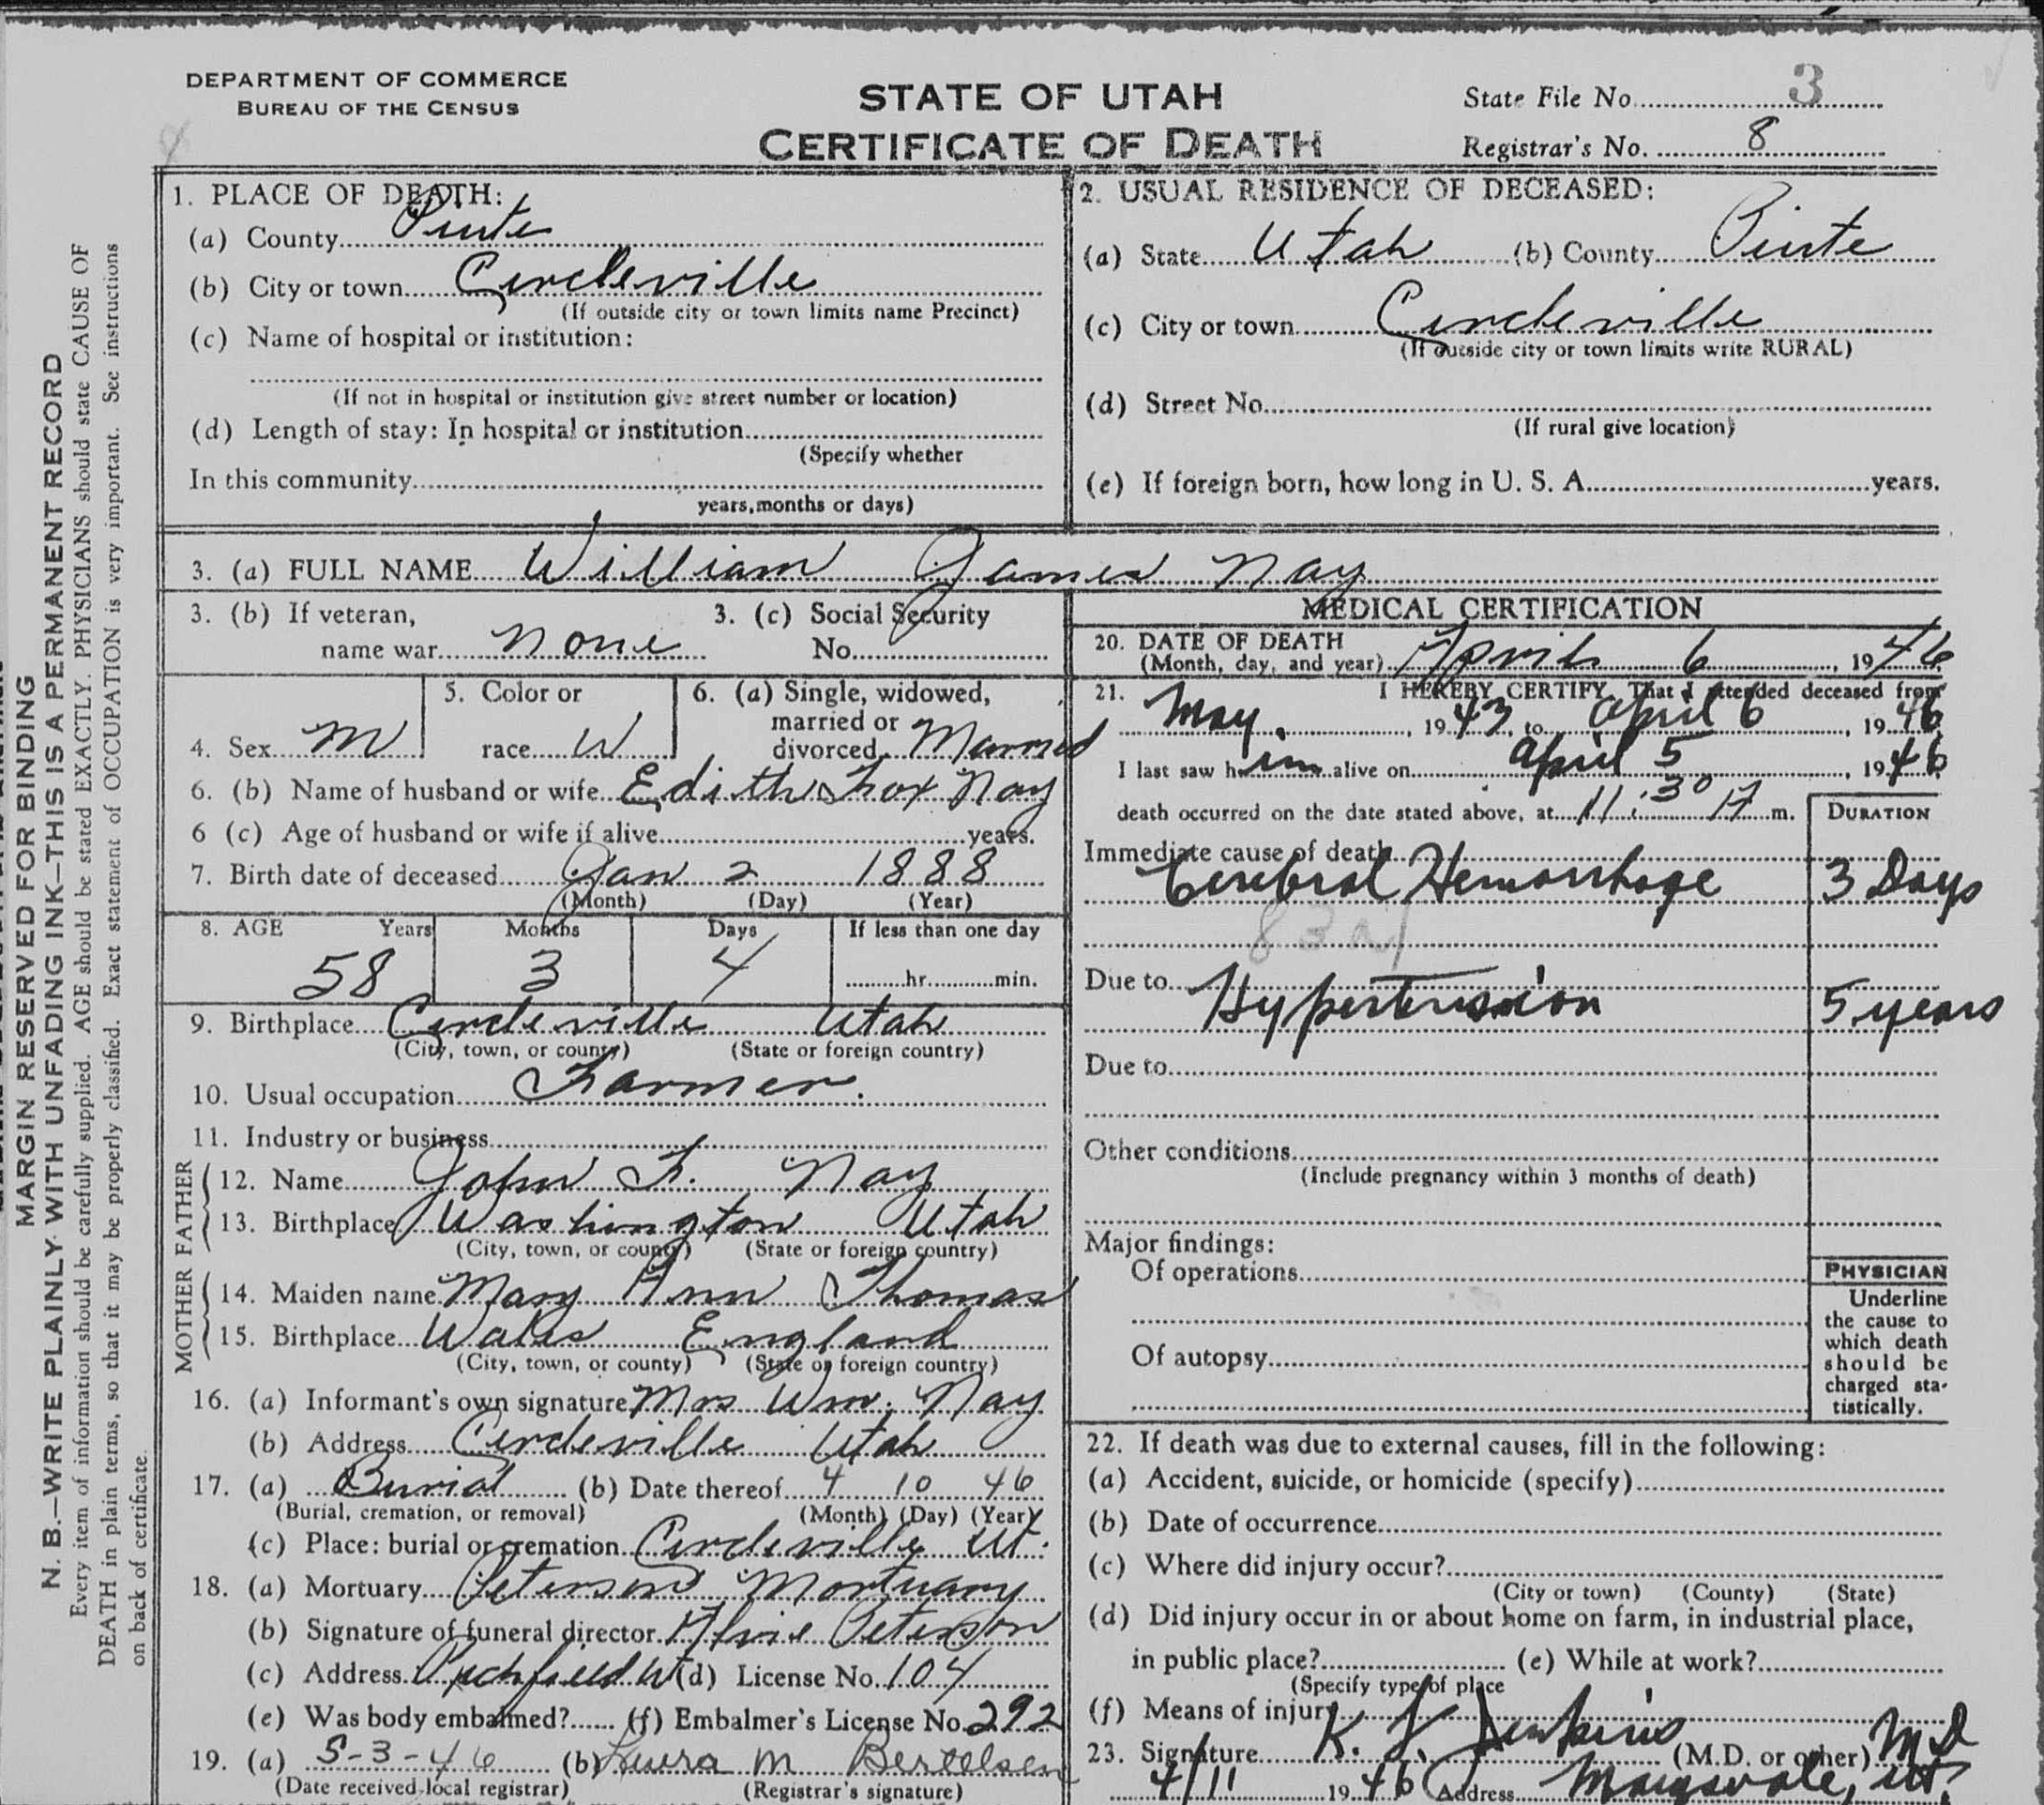 DEPARTMENT OF COMMERCE
BUREAU OF THE CENSUS
STATE OF UTAH
CERTIFICATE OF DEATH
State File No. 3
Registrar's No. 8
MARGIN RESERVED FOR BINDING
N. B.—WRITE PLAINLY WITH UNFADING INK—THIS IS A PERMANENT RECORD
Every item of information should be carefully supplied. AGE should be stated EXACTLY. PHYSICIANS should state CAUSE OF
DEATH in plain terms, so that it may be properly classified. Exact statement of OCCUPATION is very important. See instructions
on back of certificate.
1. PLACE OF DEATH:
(a) County Piute
(b) City or town Circleville
(If outside city or town limits name Precinct)
(c) Name of hospital or institution:
(If not in hospital or institution give street number or location)
(d) Length of stay: In hospital or institution
(Specify whether
In this community
years, months or days)
2. USUAL RESIDENCE OF DECEASED:
(a) State Utah (b) County Piute
(c) City or town Circleville
(If outside city or town limits write RURAL)
(d) Street No.
(If rural give location)
(e) If foreign born, how long in U. S. A. years.
3. (a) FULL NAME William James Nay
3. (b) If veteran, 3. (c) Social Security
name war None No.
4. Sex M 5. Color or race W 6. (a) Single, widowed, married or divorced Married
6. (b) Name of husband or wife Edith Fox Nay
6 (c) Age of husband or wife if alive years.
7. Birth date of deceased Jan 2 1888
(Month) (Day) (Year)
8. AGE Years Months Days If less than one day
58 3 4 hr. min.
9. Birthplace Circleville Utah
(City, town, or county) (State or foreign country)
10. Usual occupation Farmer.
11. Industry or business
FATHER
12. Name John F. Nay
13. Birthplace Washington Utah
(City, town, or county) (State or foreign country)
MOTHER
14. Maiden name Mary Ann Thomas
15. Birthplace Wales England
(City, town, or county) (State or foreign country)
16. (a) Informant's own signature Mrs Wm. Nay
(b) Address Circleville Utah
17. (a) Burial (b) Date thereof 4 10 46
(Burial, cremation, or removal) (Month) (Day) (Year)
(c) Place: burial or cremation Circleville Ut.
18. (a) Mortuary Peterson Mortuary
(b) Signature of funeral director Alvie Peterson
(c) Address Richfield Ut (d) License No. 104
(e) Was body embalmed? (f) Embalmer's License No. 292
19. (a) 5-3-46 (b) Luera M Bertelsen
(Date received local registrar) (Registrar's signature)
MEDICAL CERTIFICATION
20. DATE OF DEATH
(Month, day, and year) April 6, 1946
21. I HEREBY CERTIFY, That I attended deceased from
May, 1943, to April 6, 1946
I last saw him alive on April 5, 1946
death occurred on the date stated above, at 11:30 P m.
DURATION
Immediate cause of death
Cerebral Hemorrhage 3 Days
83a
Due to
Hypertension 5 years
Due to
Other conditions
(Include pregnancy within 3 months of death)
Major findings:
Of operations
Of autopsy
PHYSICIAN
Underline
the cause to
which death
should be
charged sta-
tistically.
22. If death was due to external causes, fill in the following:
(a) Accident, suicide, or homicide (specify)
(b) Date of occurrence
(c) Where did injury occur?
(City or town) (County) (State)
(d) Did injury occur in or about home on farm, in industrial place,
in public place? (e) While at work?
(Specify type of place
(f) Means of injury
23. Signature K. J. Jenkins (M.D. or other) MD
4/11 1946 Address Marysvale, Ut.